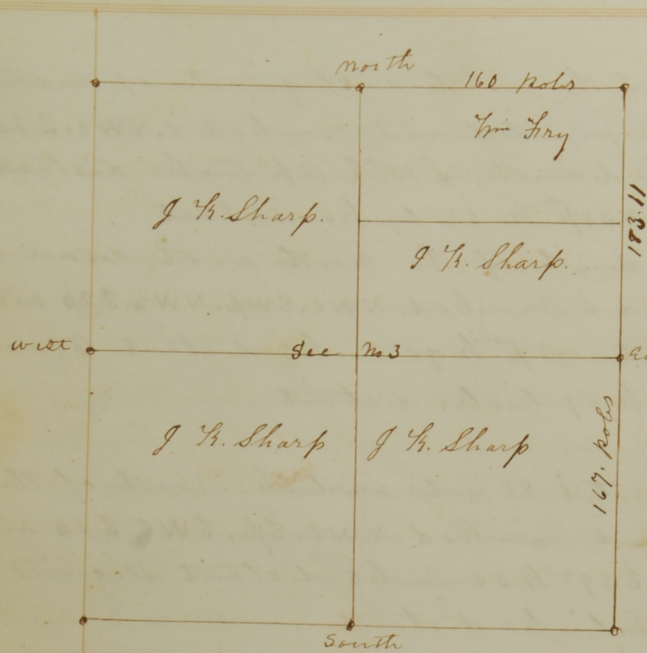 north
160 pols
Wm Fry
J K. Sharp.
183.11
J K. Sharp.
west
Sec No 3
J K. Sharp
J K. Sharp
167. pols
South